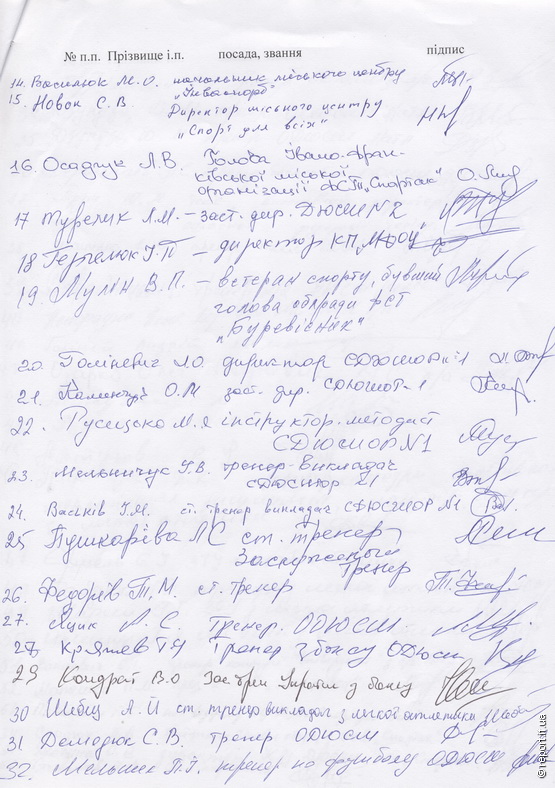 № п.п. Прізвище і.п. посада, звання підпис
14. Василюк М.О. начальник міського центру
"Інваспорт"
15. Новак С.В Директор міського центру
"Спорт для всіх"
16. Осадчук Л.В. Голова Івано-Фран-
ківської міської
організації ФСТ "Спартак"
17 Л.М. – заст. дир. ДЮСШ №2
18 – директор КП
19. Мулін В.П. – ветеран спорту, бувший
голова облради ФСТ
"Буревісник"
20. директор СДЮСШОР №1
21. О.М заст. дир. СДЮСШОР-1
22. Русицько М.Я інструктор-методист
СДЮСШОР №1
23. Мельничук Г.В. тренер-викладач
СДЮСШОР №1
24. Васьків І.М. ст. тренер викладач СДЮСШОР №1
25 Пушкарьова Л С ст. тренер
Заслужений
тренер
26. Федорів Т, М. ст. тренер
27. Яцик Л. С. Тренер. ОДЮСШ
28 Тренер з боксу ОДЮСШ
29 Кондрат В.О Зас. трен України з боксу
30 Швець А. Й ст. тренер викладач з легкої атлетики
31 Демодюк С. В. тренер ОДЮСШ
32. Мельник П.І. тренер по футболу ОДЮСШ
© report.if.ua